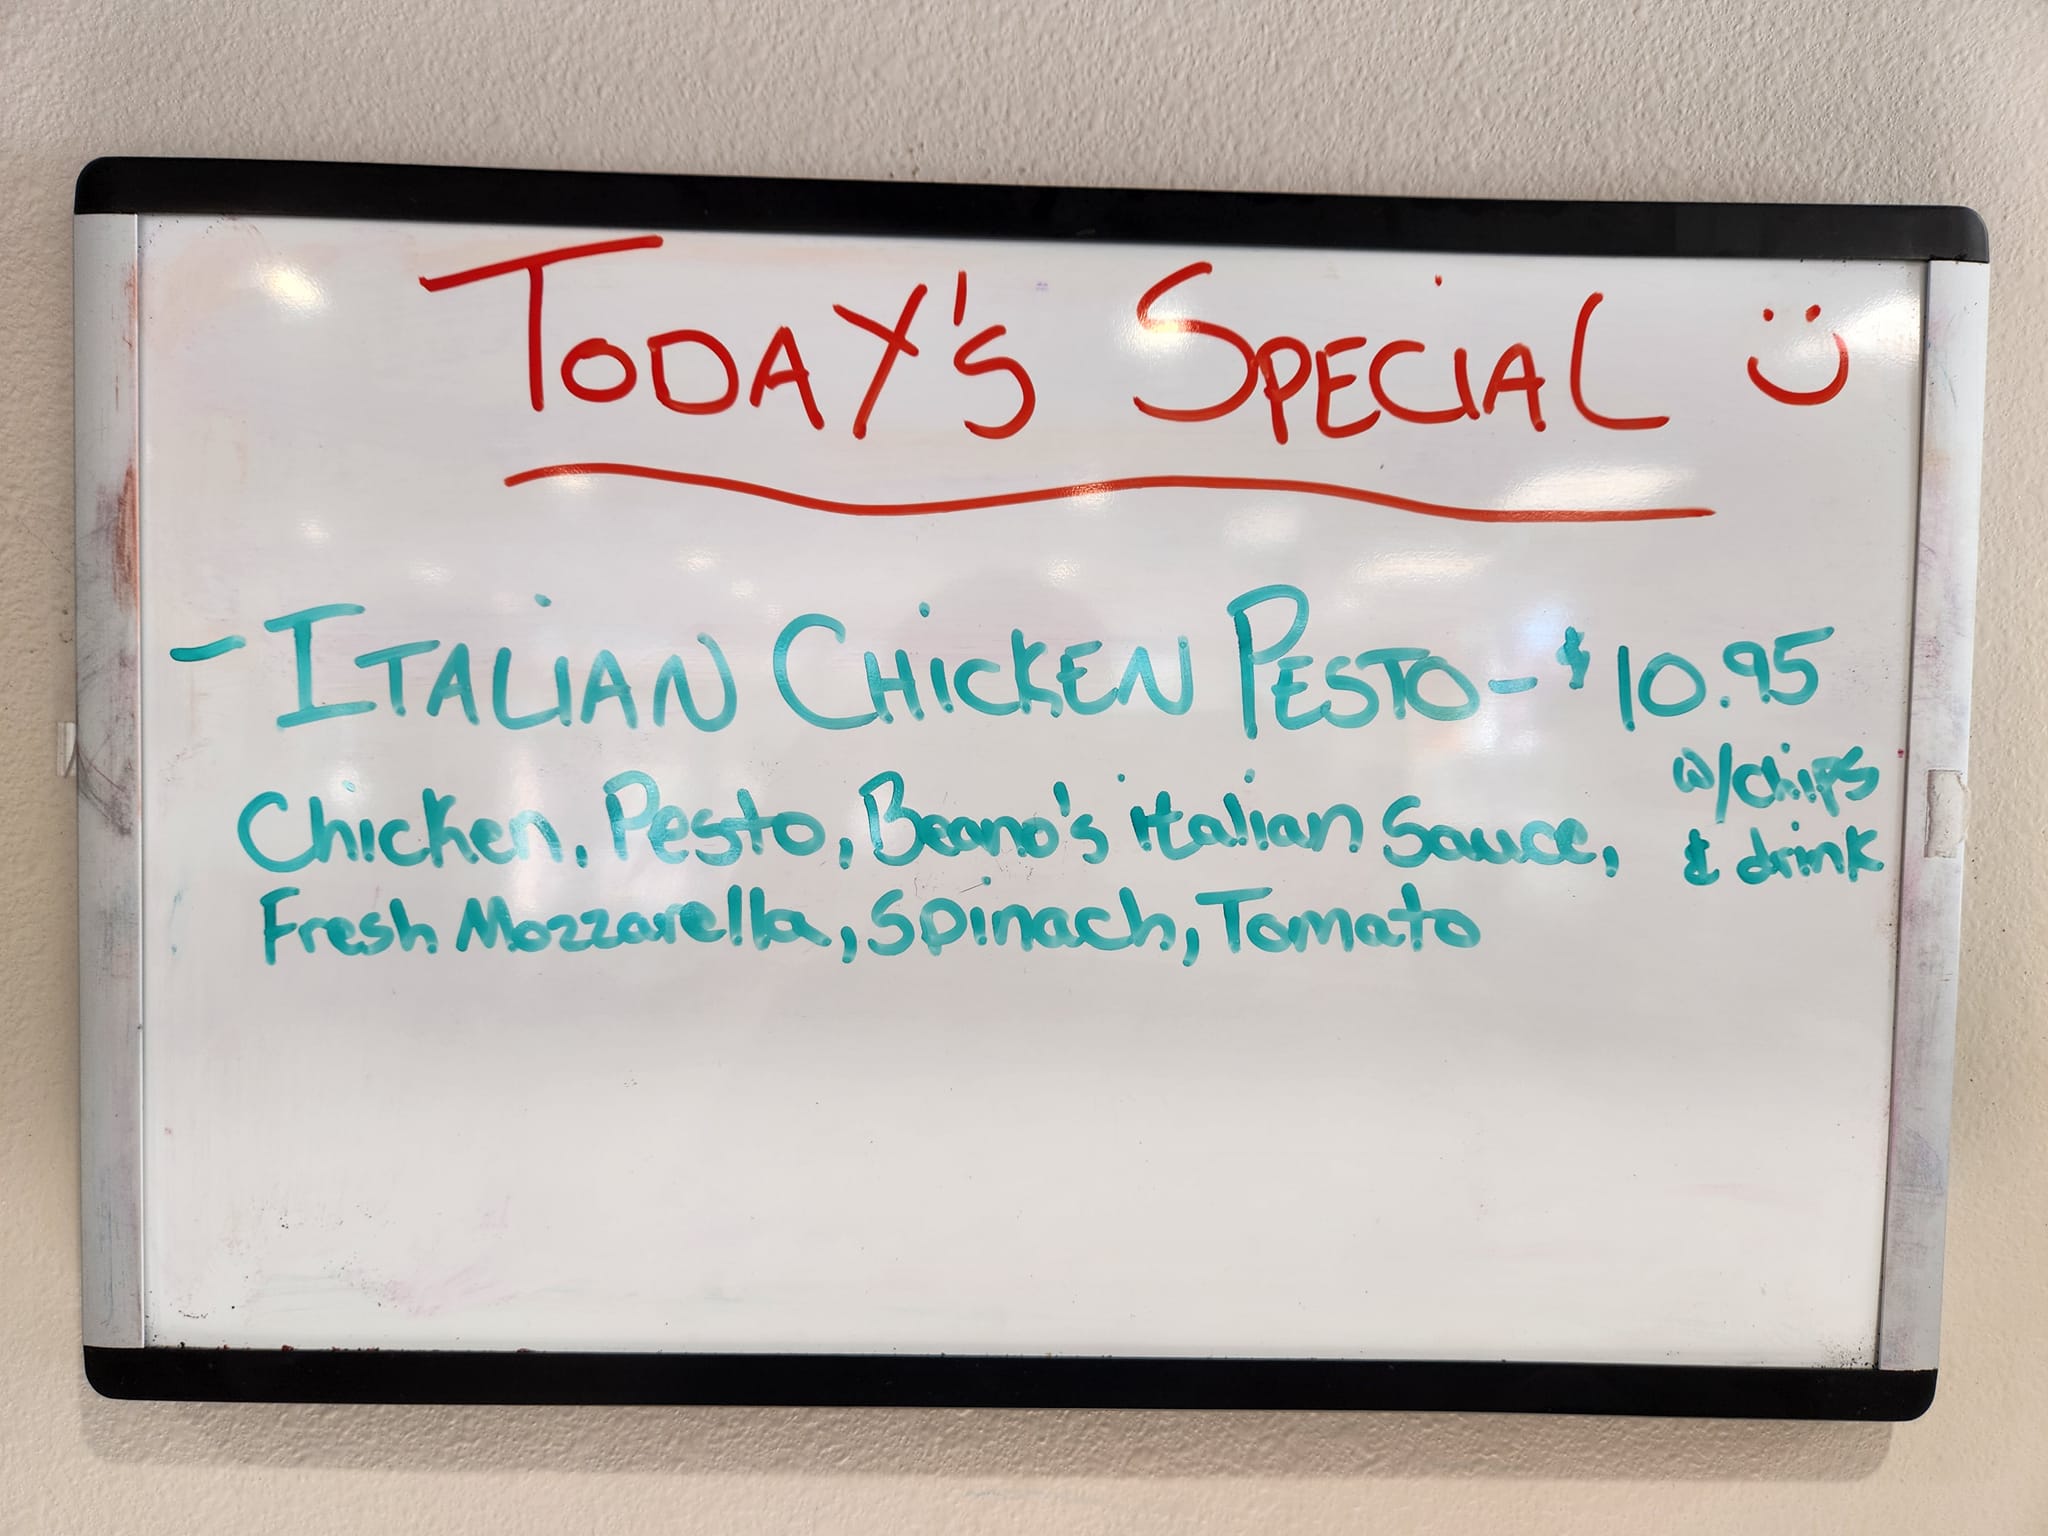 TODAY'S SPECIAL
- ITALIAN CHICKEN PESTO - $10.95
w/chips
& drink
Chicken, Pesto, Beano's italian Sauce,
Fresh Mozzarella, Spinach, Tomato